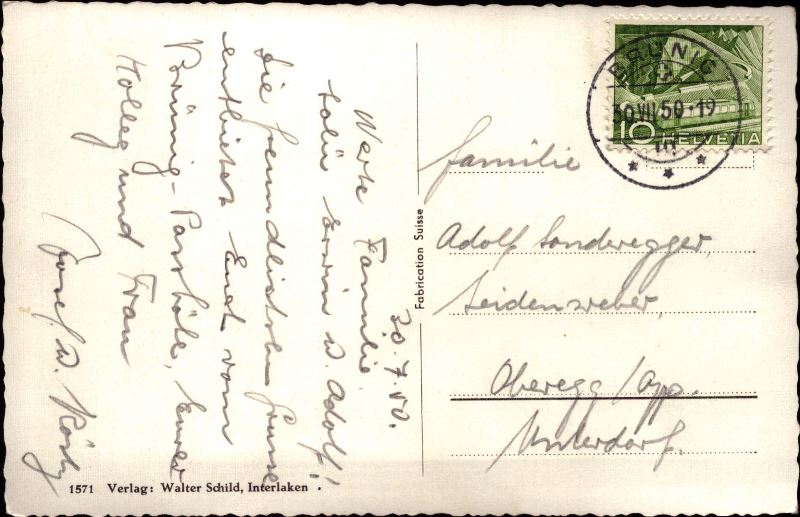 30.7.50.
Werte Familie
sowie Erwin u. Adolf!
Die freundlichsten Grüsse
entbietet Euch vom
Brünig-Passhöhe, Euer
Kolleg und Frau
Josef u.
Fabrication Suisse
BRÜNIG
30.VII.50-19
10 HELVETIA
Familie
Adolf Sonderegger,
Seidenweber,
Oberegg/App.
Unterdorf.
1571 Verlag: Walter Schild, Interlaken.